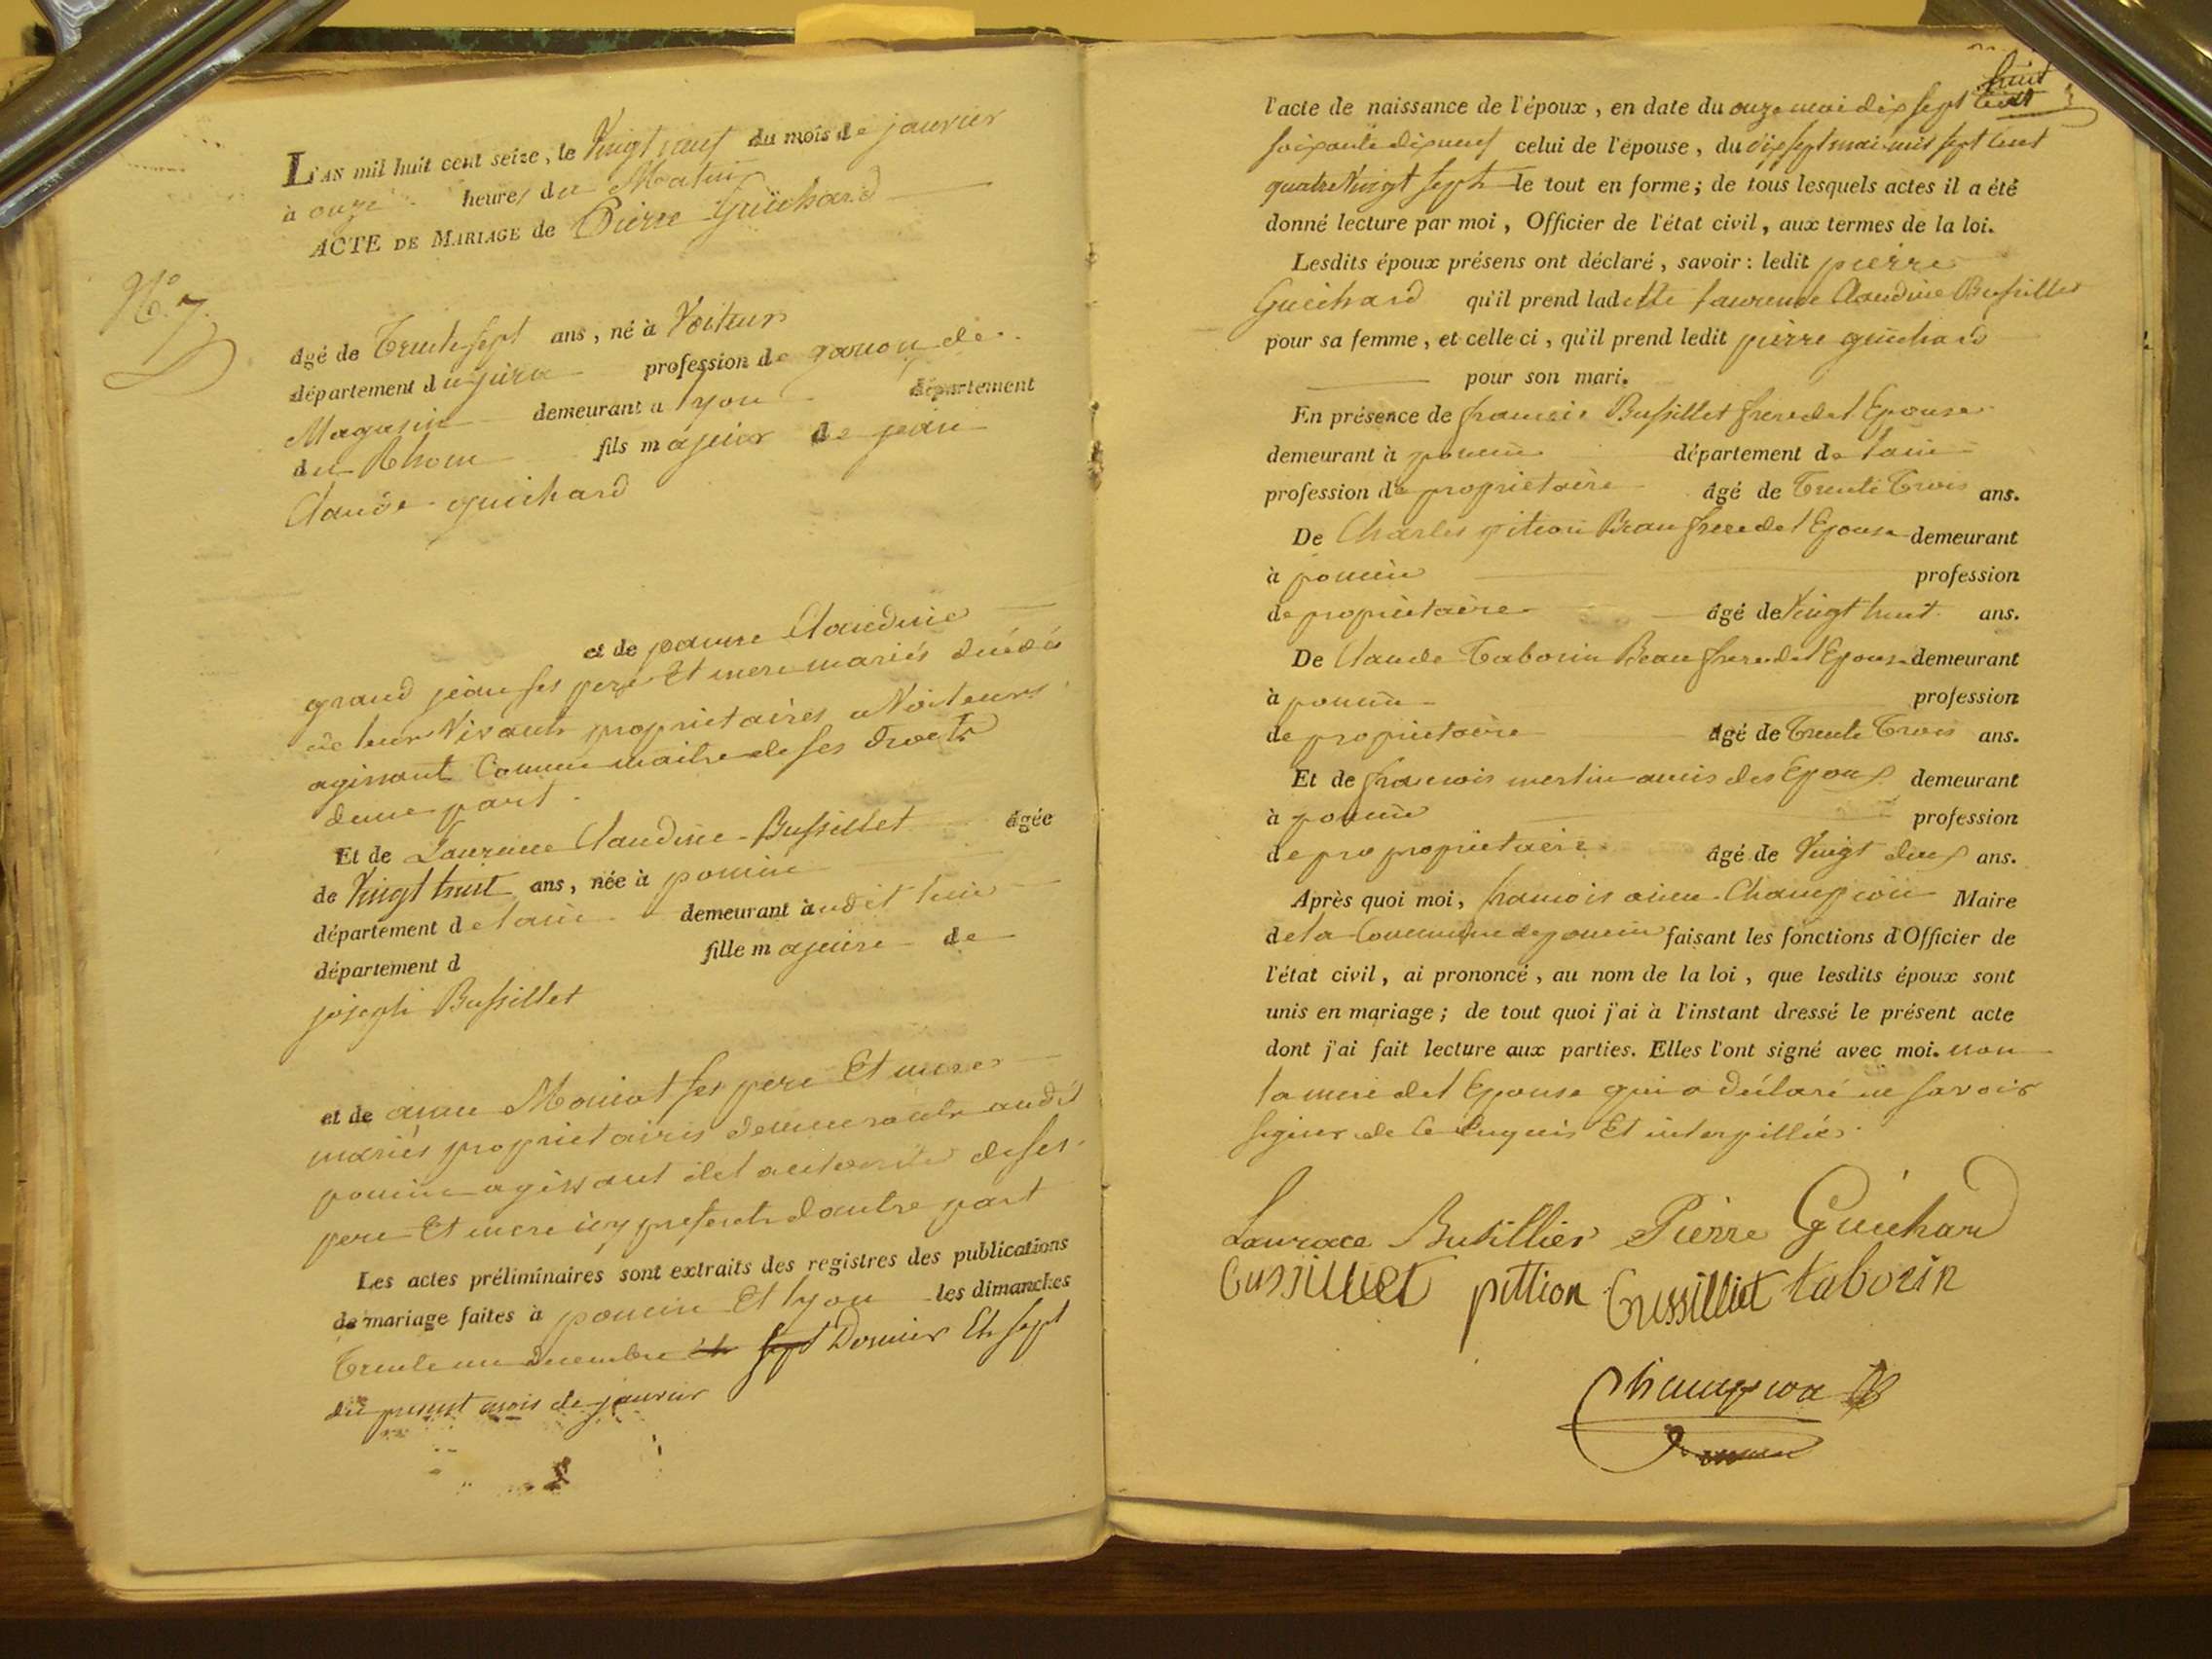 L'AN mil huit cent seize, le Vingt neuf du mois de janvier
à onze heures du Matin
ACTE DE MARIAGE de Pierre Guichard
N.° 7.
âgé de Trente sept ans, né à Voiteur
département du jura profession de garcon de
Magasin demeurant a lyon département
du Rhone fils majeur de jean
Claude guichard
et de jeanne Claudine
grand jean ses pere Et mere mariés décédés
de leur Vivant proprietaires a Voiteur
agissant Comme maitre de ses droits
dune part
Et de Laurence Claudine Bussillet âgée
de Vingt huit ans, née à poncin
département de lain demeurant audit lieu
département d fille majeure de
joseph Bussillet
et de anne Moniot ses pere Et mere
mariés proprietaires demeurants audit
poncin agissant de l autorité de ses
pere Et mere icy presents dautre part
Les actes préliminaires sont extraits des registres des publications
de mariage faites à poncin Et lyon les dimanches
Trente un decembre Et sept Dernier Et sept
du present mois de janvier
huit
l'acte de naissance de l'époux, en date du onze mai dix sept cent
soixante dix neuf celui de l'épouse, du dix sept mai mil sept cent
quatre Vingt sept le tout en forme; de tous lesquels actes il a été
donné lecture par moi, Officier de l'état civil, aux termes de la loi.
Lesdits époux présens ont déclaré, savoir: ledit pierre
Guichard qu'il prend ladette laurence Claudine Bussillet
pour sa femme, et celle ci, qu'il prend ledit pierre guichard
pour son mari.
En présence de francois Bussillet frere de l Epouse
demeurant à poncin département de lain
profession de proprietaire âgé de Trente Trois ans.
De Charles pition Beau frere de l Epouse demeurant
à poncin profession
de proprietaire âgé de Vingt huit ans.
De Claude Taborin Beau frere de l Epouse demeurant
à poncin profession
de proprietaire âgé de Trente Trois ans.
Et de francois mertin amis des Epoux demeurant
à poncin profession
de pro proprietaire âgé de Vingt deux ans.
Après quoi moi, francois aimé Champion Maire
de la Commune de poncin faisant les fonctions d'Officier de
l'état civil, ai prononcé, au nom de la loi, que lesdits époux sont
unis en mariage; de tout quoi j'ai à l'instant dressé le présent acte
dont j'ai fait lecture aux parties. Elles l'ont signé avec moi. non
la mere de l Epouse qui a déclaré ne savoir
signer de ce Enquis Et interpellée
Laurace Busillier Pierre Guichard
bussilliet pittion bussilliet taborin
Champion